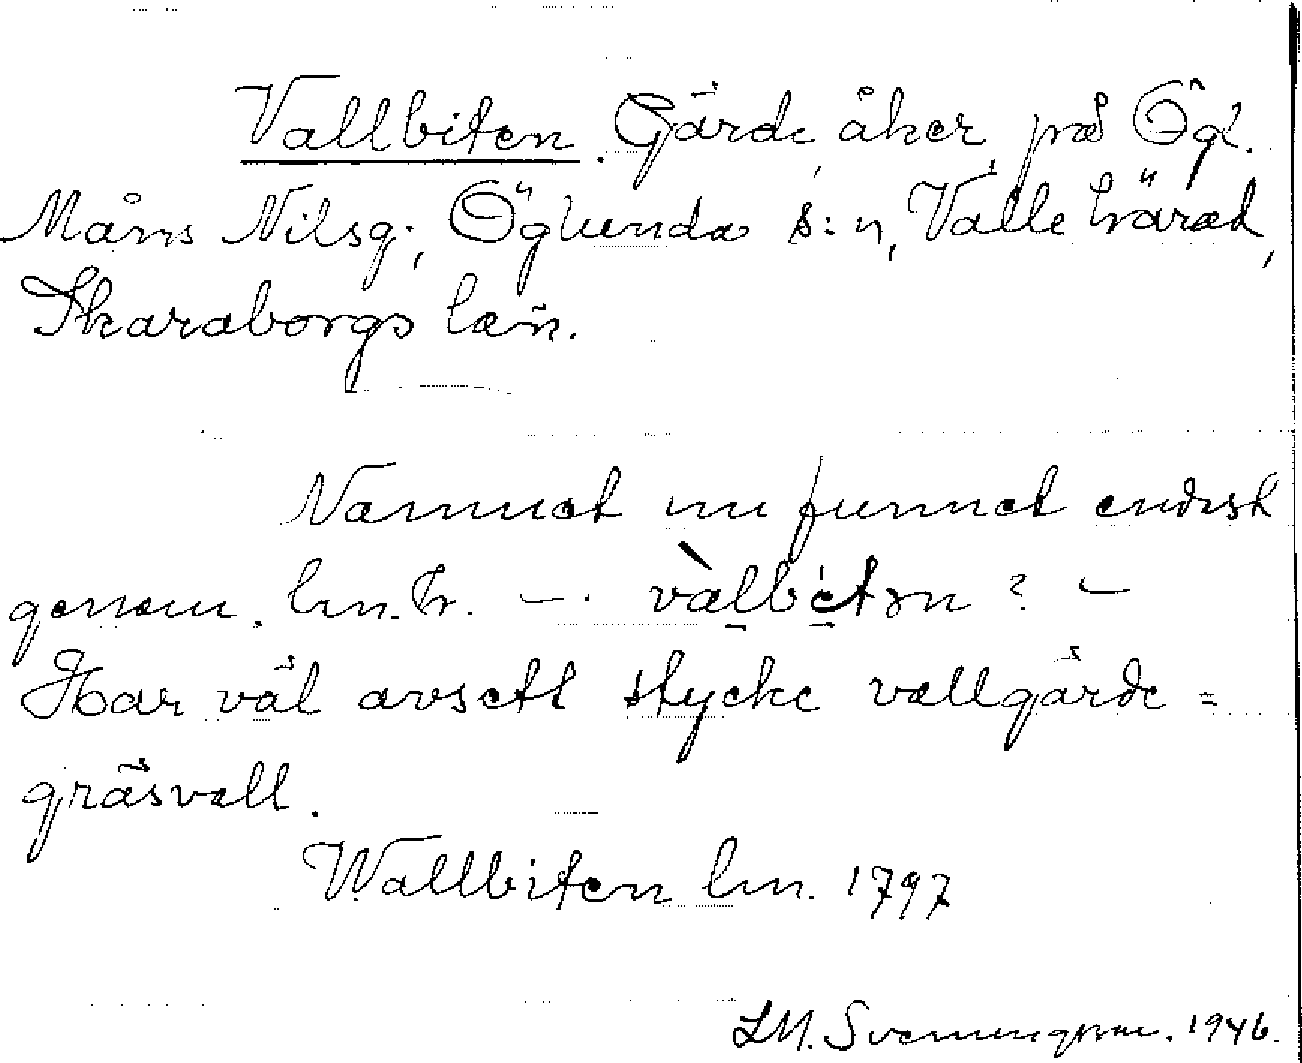 Vallbiten. Gärde, åker, på Ögl.
Måns Nilsg., Öglunda s:n, Valle härad,
Skaraborgs län.
Namnet nu funnet endast
genom lm. h. — valbetən ? —
Har väl avsett stycke vallgärde =
gräsvall.
Wallbiten lm. 1797
LM. Svenungsson. 1946.